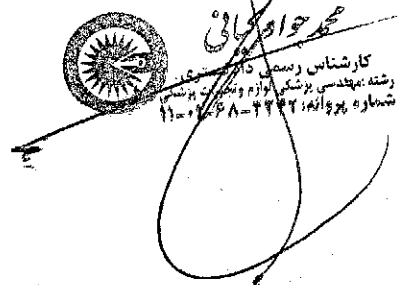 محمد جواد کیانی
کارشناس رسمی دادگستری
رشته: مهندسی پزشکی لوازم و تجهیزات پزشکی
شماره پروانه: